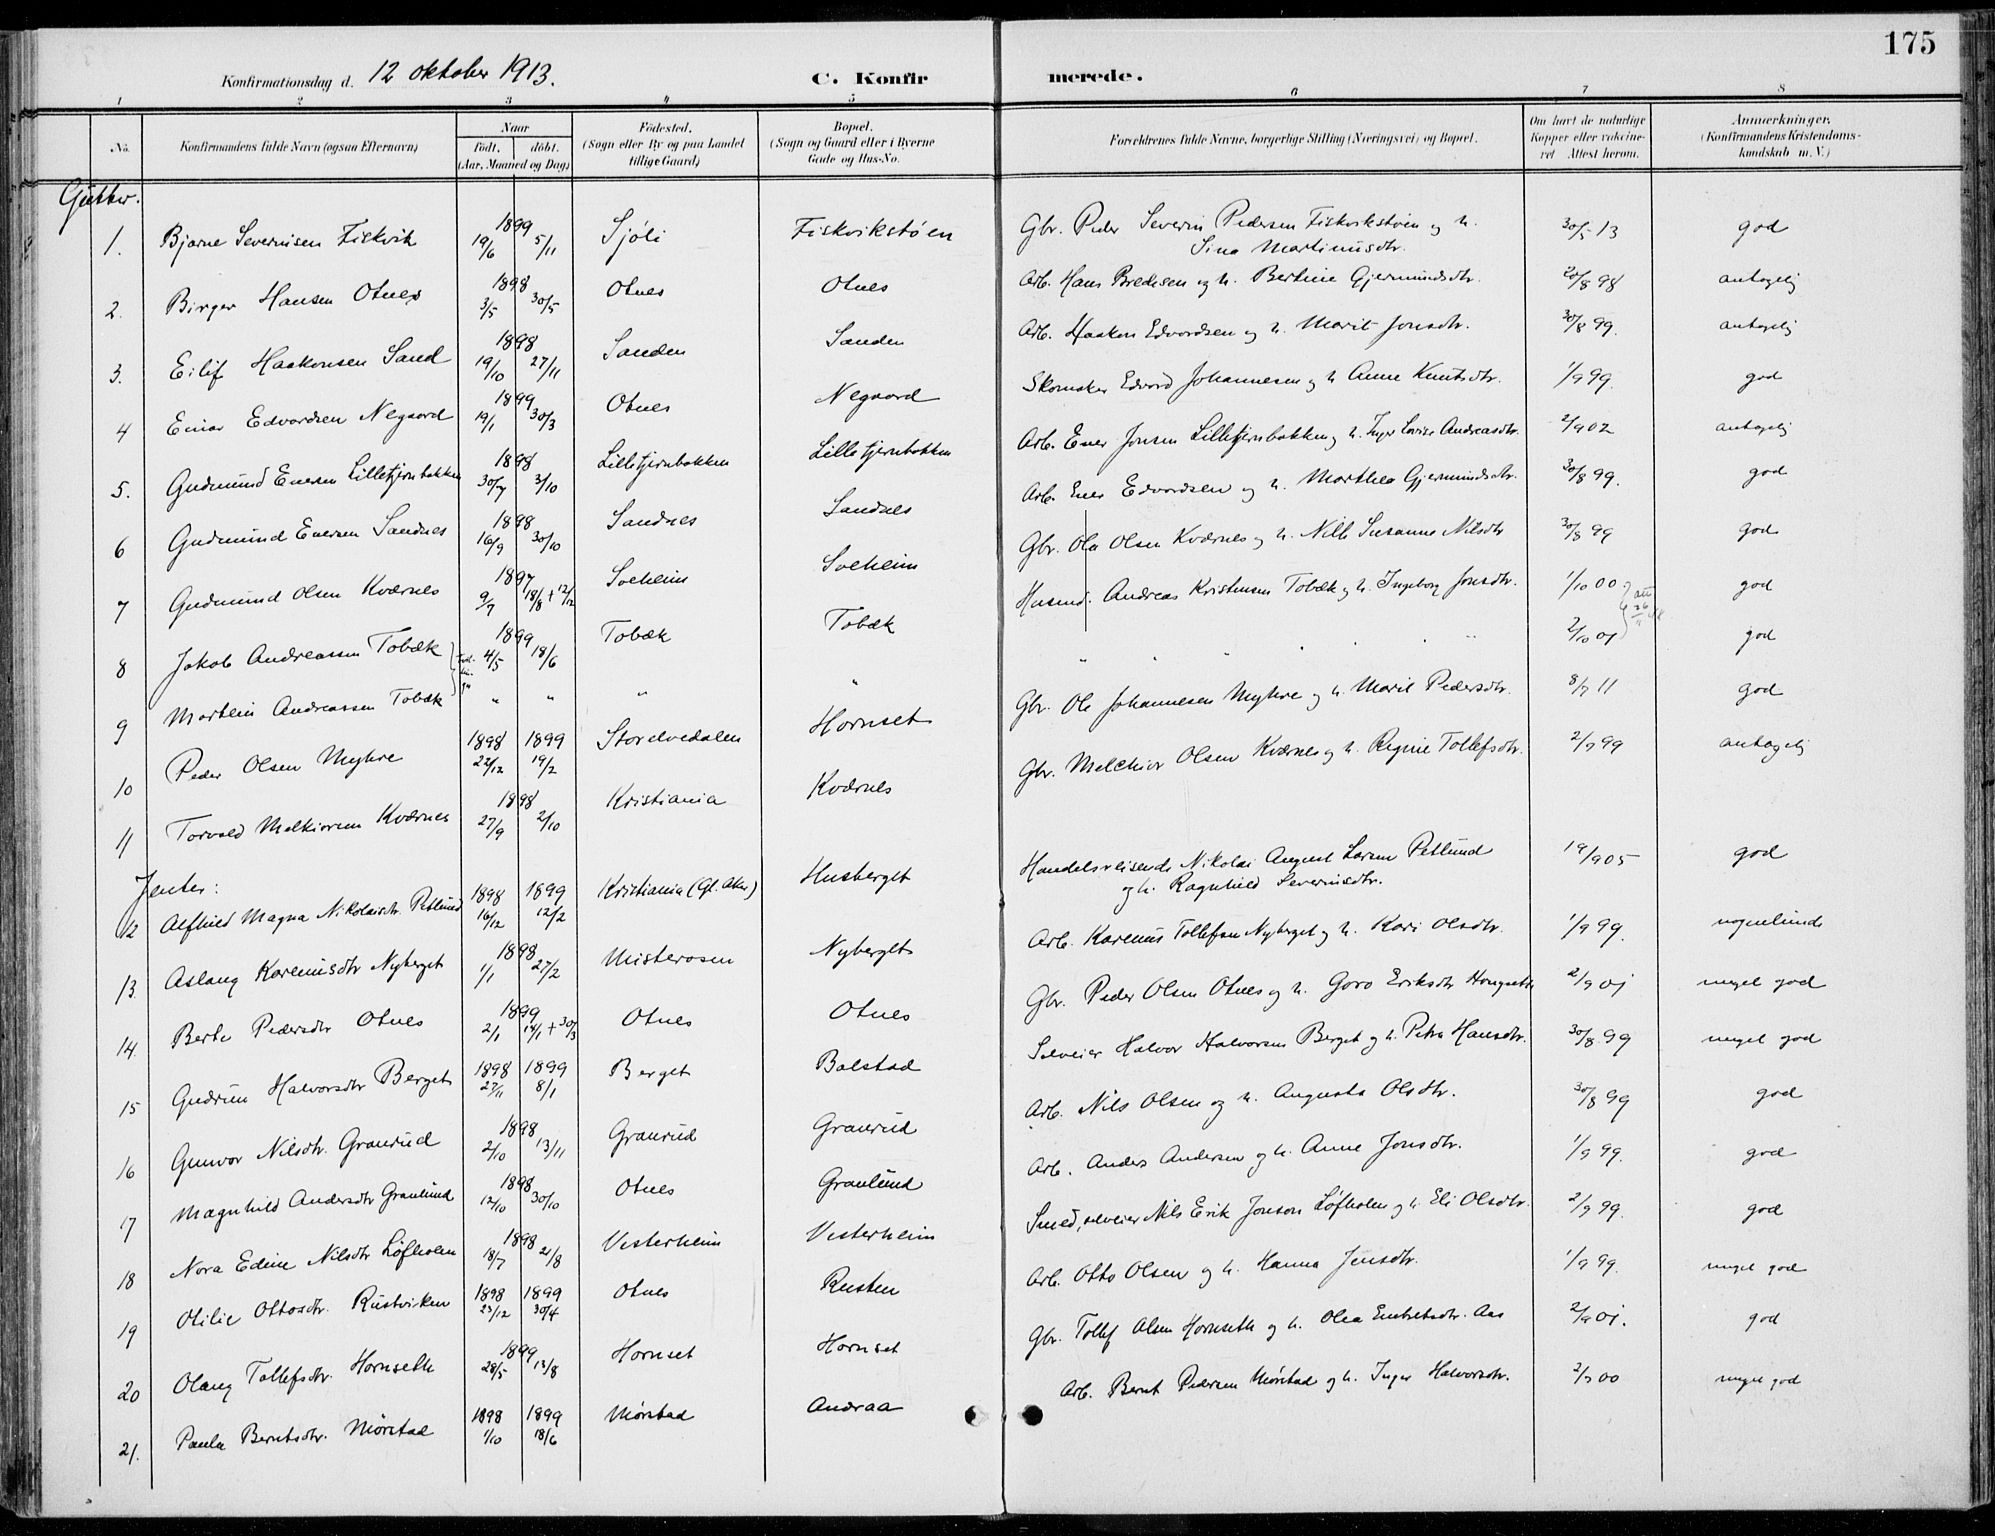 175
Konfirmationsdag d. 12 oktober 1913. C. Konfirmerede.
1 2 3 4 5 6 7 8
No. Konfirmandens fulde Navn (ogsaa Efternavn) Naar födt. döbt. (Aar, Maaned og Dag) Födested. (Sogn eller By og paa Landet tillige Gaard) Bopæl. (Sogn og Gaard eller i Byerne Gade og Hus-No. Forældrenes fulde Navne, borgerlige Stilling (Næringsvei) og Bopæl. Om havt de naturlige Kopper eller vaccineret Attest herom. Anmerkninger. (Konfirmandens Kristendomskundskab m.V.)
Gutter.
1. Bjarne Severinsen Fiskvik 1899 19/6 5/11 Sjøli Fiskvikstøen Gbr. Peder Severin Pedersen Fiskvikstøen og h. Sina Martinusdtr. 30/5 13 god
2. Birger Hansen Otnes 1898 3/5 30/5 Otnes Otnes Arb. Hans Bredesen og h. Bertine Gjermundsdtr. 20/8 98 antagelig
3. Eilif Haakonsen Sand 1898 19/10 27/11 Sanden Sanden Arb. Haakon Edvardsen og h. Marit Jonsdtr. 30/8 99. antagelig
4 Einar Edvardsen Negaard 1899 19/1 30/3 Otnes Negaard Skomaker Edvard Johannesen og h Anne Knutsdtr. 1/9 99. god
5. Gudmund Enersen Lilletjernbakken 1898 30/7 3/10 Lilletjernbakken Lilletjernbakken Arb. Ener Jonsen Lilletjernbakken og h. Inger Lovise Andreasdtr. 2/9 02 antagelig
6 Gudmund Enersen Sandnes 1898 16/9 30/10 Sandnes Sandnes Arb. Ener Edvardsen og h. Marthea Gjermundsdtr. 30/8 99. god
7 Gudmund Olsen Kværnes 1897 9/7 18/8 + 12/12 Solheim Solheim Gbr. Ola Olsen Kværnes og h. Nille Susanne Nilsdtr 30/8 99 god
8 Jakob Andreassen Tobæk 1899 4/5 18/6 Tobæk Tobæk Husmd. Andreas Kristensen Tobæk og h. Ingeborg Jonsdtr. 1/10 00 god
9 Martein Andreassen Tobæk " " " " " " 2/10 01 god
10 Peder Olsen Myhre 1898 22/12 1899 19/2 Storelvedalen Hornset Gbr. Ole Johannesen Myhre og h. Marit Pedersdtr. 8/7 11 god
11 Torvald Melkiorsen Kværnes 1898 27/9 2/10 Kristiania Kværnes Gbr. Melchior Olsen Kværnes og h. Regine Tollefsdtr. 2/9 99 antagelig
Jenter:
12 Alfhild Magna Nikolaisdtr. Petlund 1898 16/12 1899 12/2 Kristiania (Gl. Aker) Husberget Handelsreisende Nikolai August Larsen Petlund og h. Ragnhild Severinsdtr. 19/9 05 god
13. Aslaug Kareniusdtr Nyberget 1898 1/1 27/2 Misterosen Nyberget Arb. Karenius Tollefsen Nyberget og h. Kari Olsdtr. 1/9 99. nogenlunde
14. Berte Pedersdtr Otnes 1899 2/1 14/1 + 30/3 Otnes Otnes Gbr. Peder Olsen Otnes og h. Goro Eriksdtr 2/9 01 meget god
15 Gudrun Halvorsdtr Berget 1898 27/11 1899 8/1 Berget Bolstad Selveier Halvor Halvorsen Berget og h. Petra Hansdtr. 30/8 99 meget god
16 Gunvor Nilsdtr. Granrud 1898 2/10 13/11 Granrud Granrud Arb. Nils Olsen og h. Augusta Olsdtr. 30/8 99 god
17 Magnhild Andersdtr Granlund 1898 12/10 30/10 Otnes Granlund Arb. Anders Andersen og h. Anne Jonsdtr. 1/9 99. god
18 Nora Edine Nilsdtr Løfholen 1898 18/7 21/8 Vesterheim Vesterheim Smed, selveier Nils Erik Jonson Løfholen og h. Eli Olsdtr. 2/9 99. god
19 Otilie Ottosdtr. Rustviken 1898 23/12 1899 30/4 Otnes Rusten Arb. Otto Olsen og h. Hanna Jensdtr. 1/9 99. meget god
20 Olaug Tollefsdtr. Hornseth 1899 28/5 13/8 Hornset Hornset Gbr. Tollef Olsen Hornseth og h. Olea Embretsdtr. Aas 2/9 01. god
21. Paula Berntsdtr. Mørstad 1898 1/10 1899 18/6 Mørstad Andraa Arb. Bernt Pedersen Mørstad og h. Inger Halvorsdtr. 2/9 00 meget god